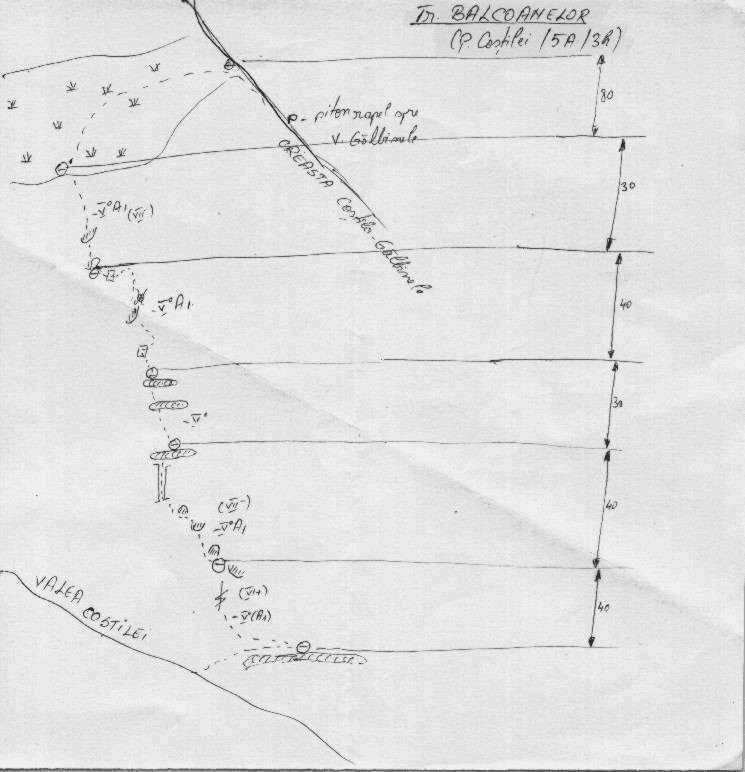 Tr. BALCOANELOR
(P. Coștilei / 5A / 3h)
80
P - piton rapel spre
V. Gălbinele
CREASTA Coștila - Gălbinele
30
V° A1 (VII-)
40
V° A1
30
V°
(VII-)
V° A1
40
(VI+)
V° (A1)
40
VALEA COSTILEI